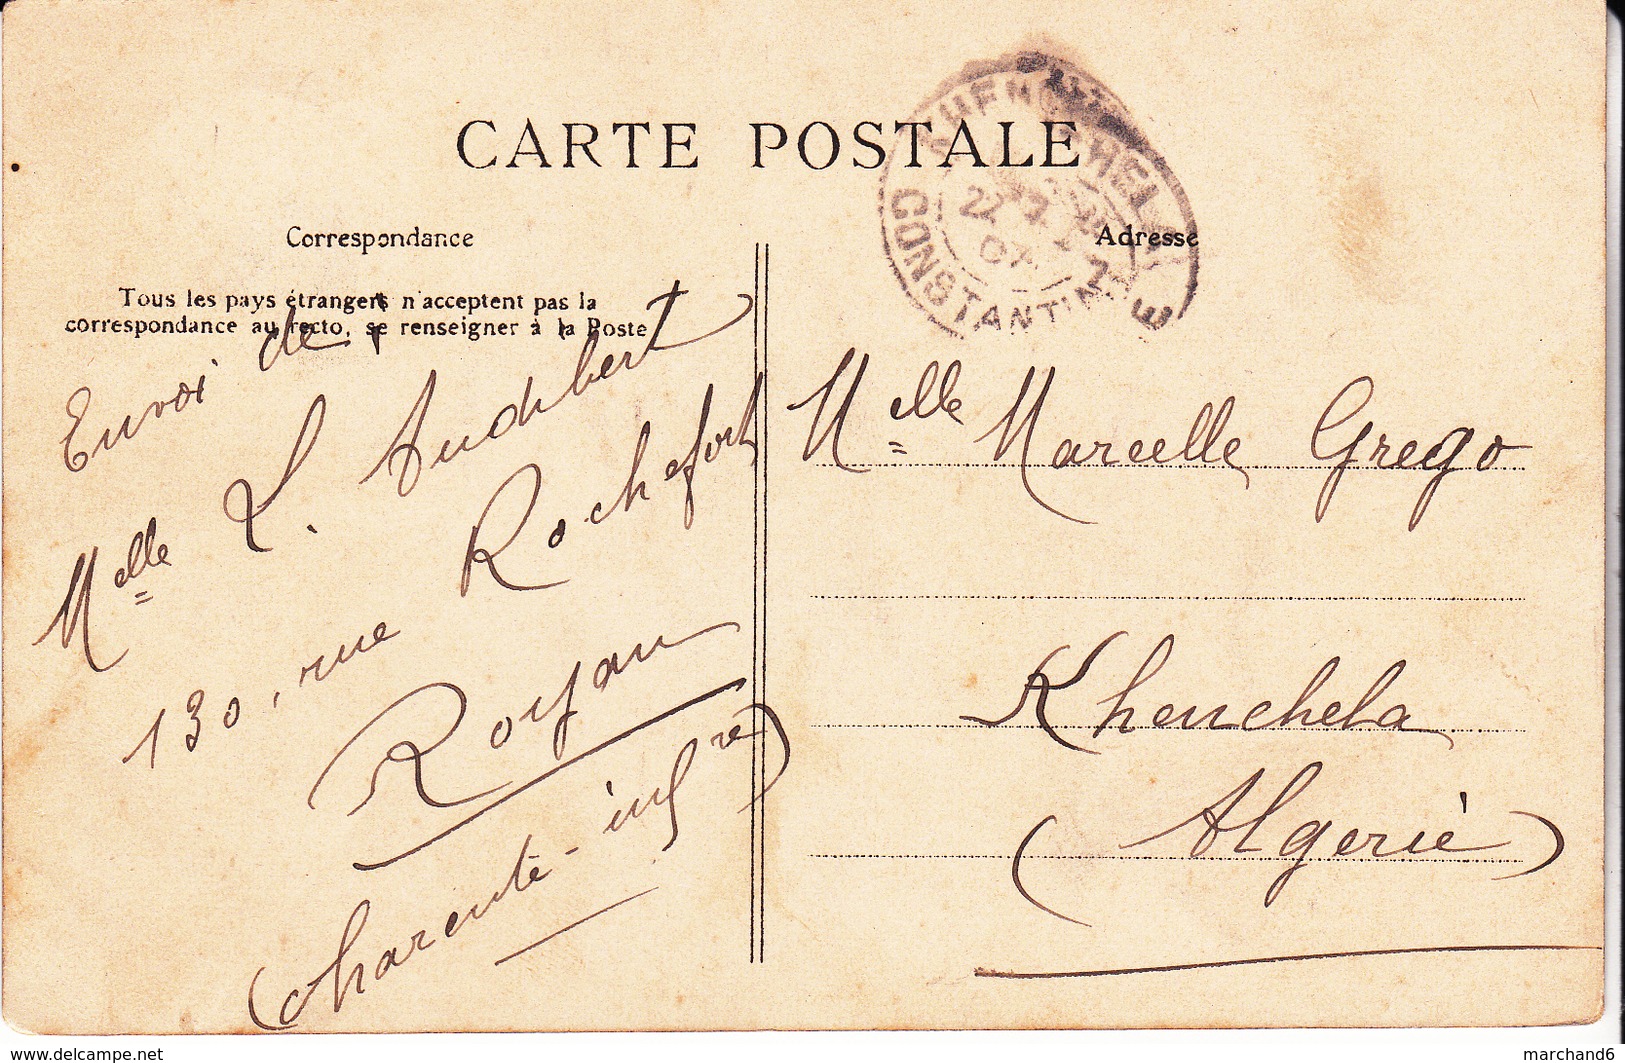 CARTE POSTALE
KHENCHELA
CONSTANTINE
22
07
Correspondance
Adresse
Tous les pays étrangers n'acceptent pas la
correspondance au recto, se renseigner à la Poste
Envoi de
Melle L. Audubert
130, rue Rochefort
Royan
(Charente-infre)
Melle Marcelle Grego
Khenchela
(Algérie)
www.delcampe.net
marchand6